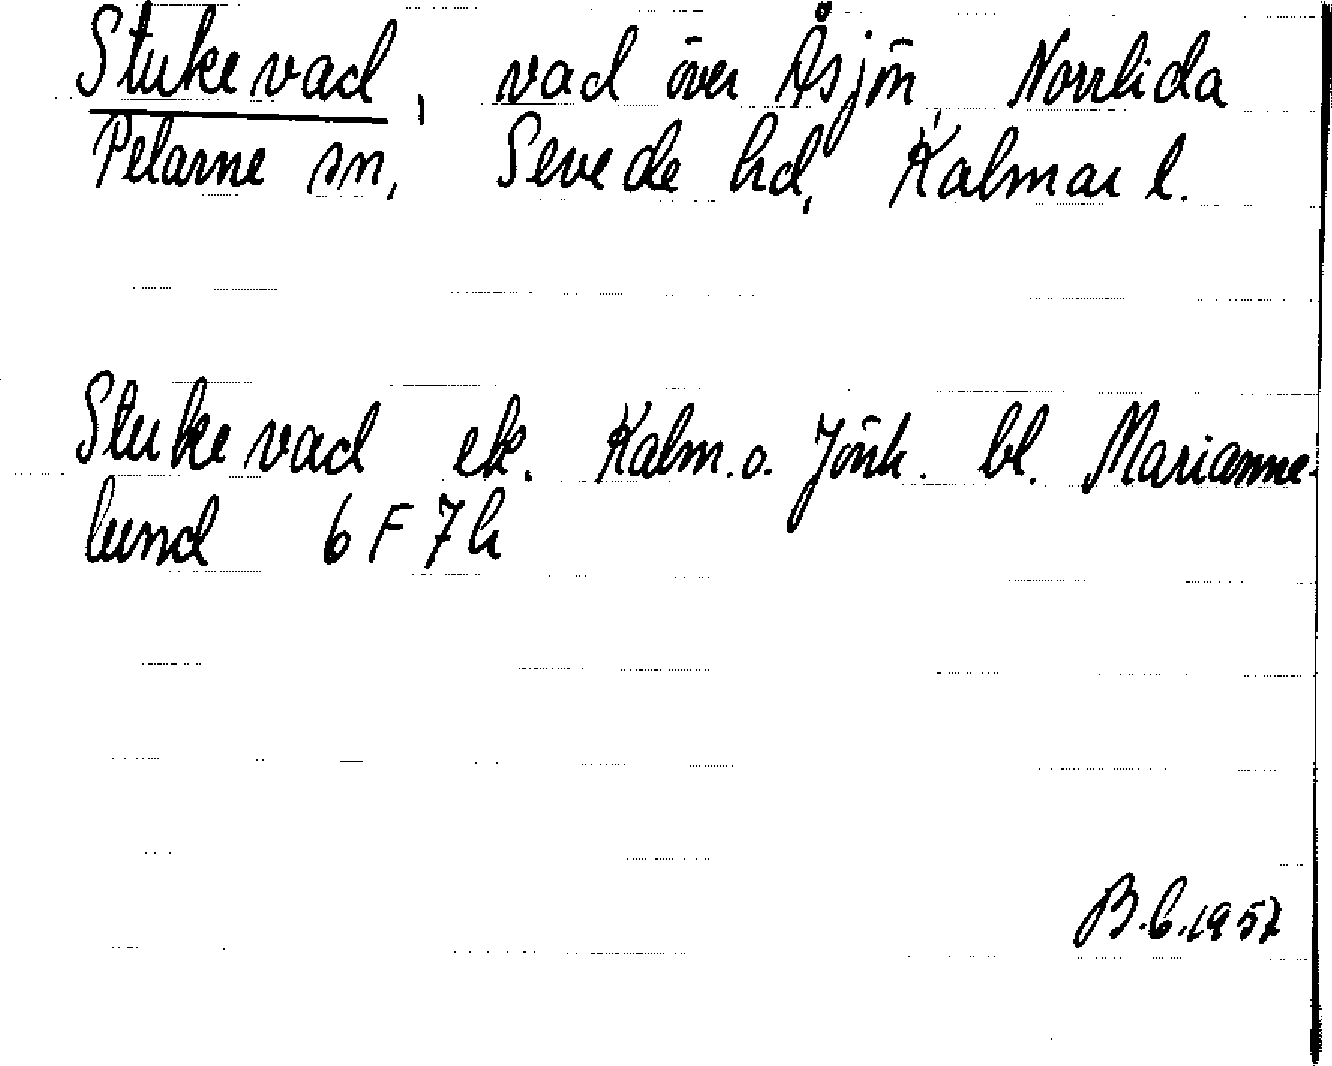 Stukevad, vad över Åsjön, Norrlida
Pelarne sn, Sevede hd, Kalmar l.
Stukevad ek. Kalm. o. Jönk. bl. Marianne-
lund 6 F 7 h
B.B. 1957